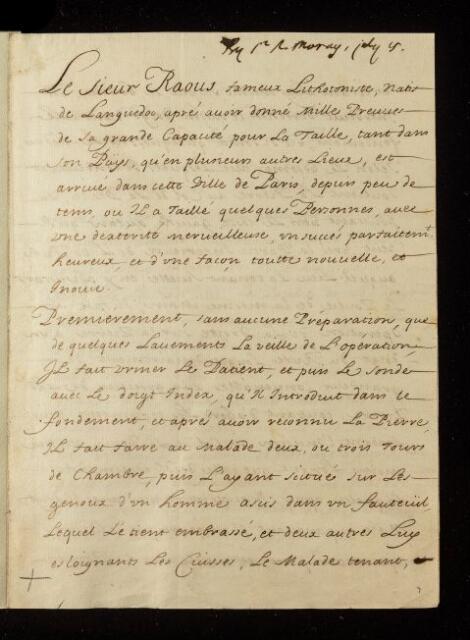 by Sr R Moray, July 5.
Le Sieur Raous, fameux Lithotomiste, Natif
de Languedoc, aprés avoir donné Mille Preuves
de sa grande Capacité pour La Taille, tant dans
son Päys, qu'en plusieurs autres Lieux, est
arrivé dans cette Ville de Paris, depuis peu de
tems, ou Il a Taillé quelques Personnes, avec
vne dexterité merveilleuse, vn succés parfaitemt
heureux, et d'vne façon toutte nouvelle, et
Inouie.
Premiérement, sans aucune Préparation, que
de quelques Lavements La veille de L'opération,
Il fait vriner Le Patient, et puis Le sonde
avec Le doigt Index, qu'Il Introduit dans Le
fondement, et aprés avoir reconnu La Pierre,
Il fait faire au Malade deux, ou trois Tours
de Chambre, puis L'ayant situé sur Les
genoux d'vn homme assis dans vn fauteüil,
Lequel Le tient embrassé, et deux autres Luy
esloignants Les Cuisses, Le Malade tenant,